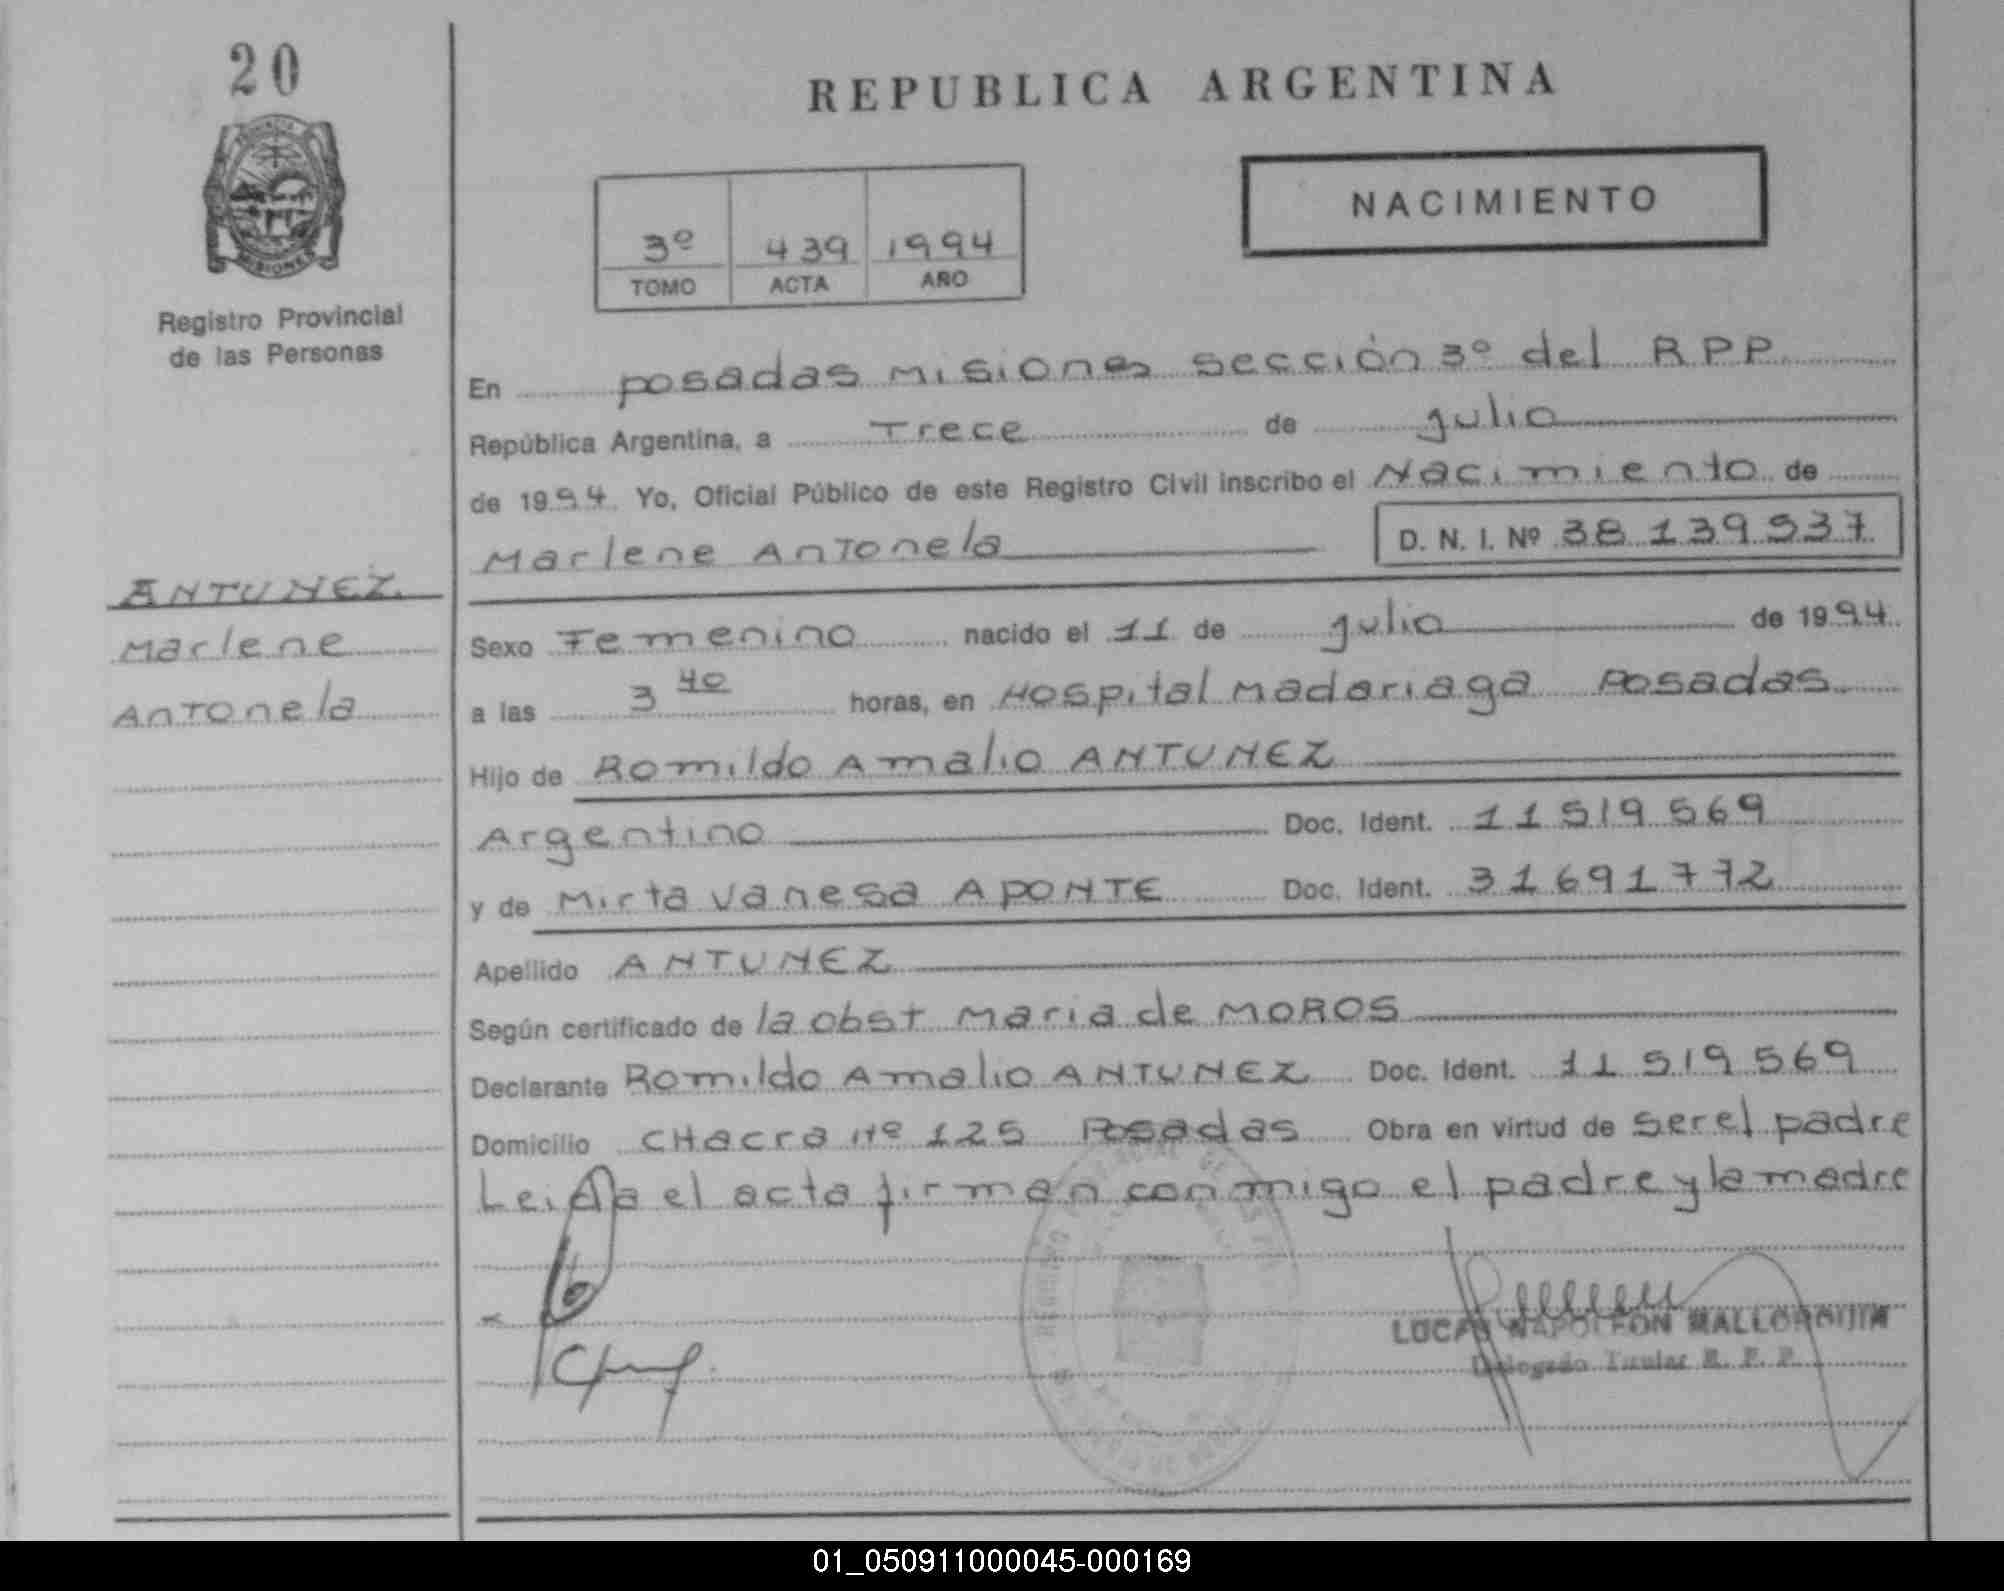 20
PROVINCIA
MISIONES
Registro Provincial
de las Personas
ANTUNEZ
Marlene
Antonela
REPUBLICA ARGENTINA
NACIMIENTO
3º 439 1994
TOMO ACTA AÑO
En posadas misiones sección 3º del RPP
República Argentina, a Trece de julio
de 1994. Yo, Oficial Público de este Registro Civil inscribo el Nacimiento de
Marlene Antonela D. N. I. Nº 38.139.937
Sexo Femenino nacido el 11 de julio de 1994.
a las 3 40 horas, en Hospital Madariaga Posadas
Hijo de Romildo Amalio ANTUNEZ
Argentino Doc. Ident. 11519569
y de Mirta Vanesa APONTE Doc. Ident. 31691772
Apellido ANTUNEZ
Según certificado de la obst Maria de MOROS
Declarante Romildo Amalio ANTUNEZ Doc. Ident. 11519569
Domicilio CHacra Nº 125 Posadas Obra en virtud de ser el padre
Leida el acta firman conmigo el padre y la madre
LUCAS NAPOLEON MALLORQUIN
Delegado Titular R. P. P.
01_050911000045-000169